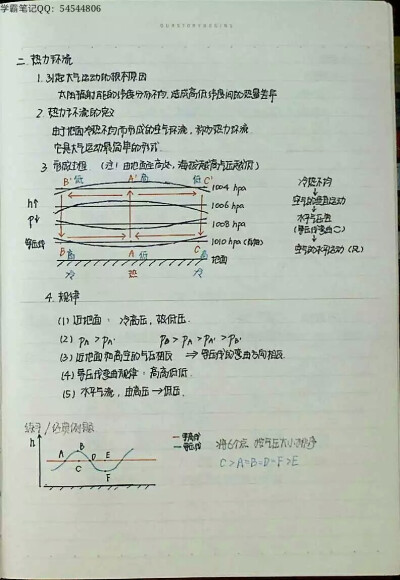 学霸笔记QQ: 54544806
二. 热力环流
1. 引起大气运动的根本原因
太阳辐射能的纬度分布不均, 造成高低纬度间的热量差异
2. 热力环流的定义
由于地面冷热不均而形成的空气环流, 称为热力环流.
它是大气运动最简单的形式.
3. 形成过程 (注: 由地面至高处, 海拔越高气压越低)
B' 低 A' 高 低 C'
1004 hpa
冷热不均
h↑
1006 hpa
空气的垂直运动
p↓
1008 hpa
水平气压差
(等压线弯曲)
等压线
1010 hpa
B 高 A 低 C 高
地面
空气的水平运动 (风)
冷 热 冷
4. 规律
(1) 近地面: 冷高压, 热低压.
(2) PA' > PB' PB > PA > PA' > PB'
(3) 近地面和高空的气压相反 ⇒ 等压线的弯曲方向相反.
(4) 等压线弯曲规律: 高高低低.
(5) 水平气流, 由高压→低压.
h
A B C D E F
等高线
等压线
将6个点 按气压大小排序
C>A=B=D=F>E